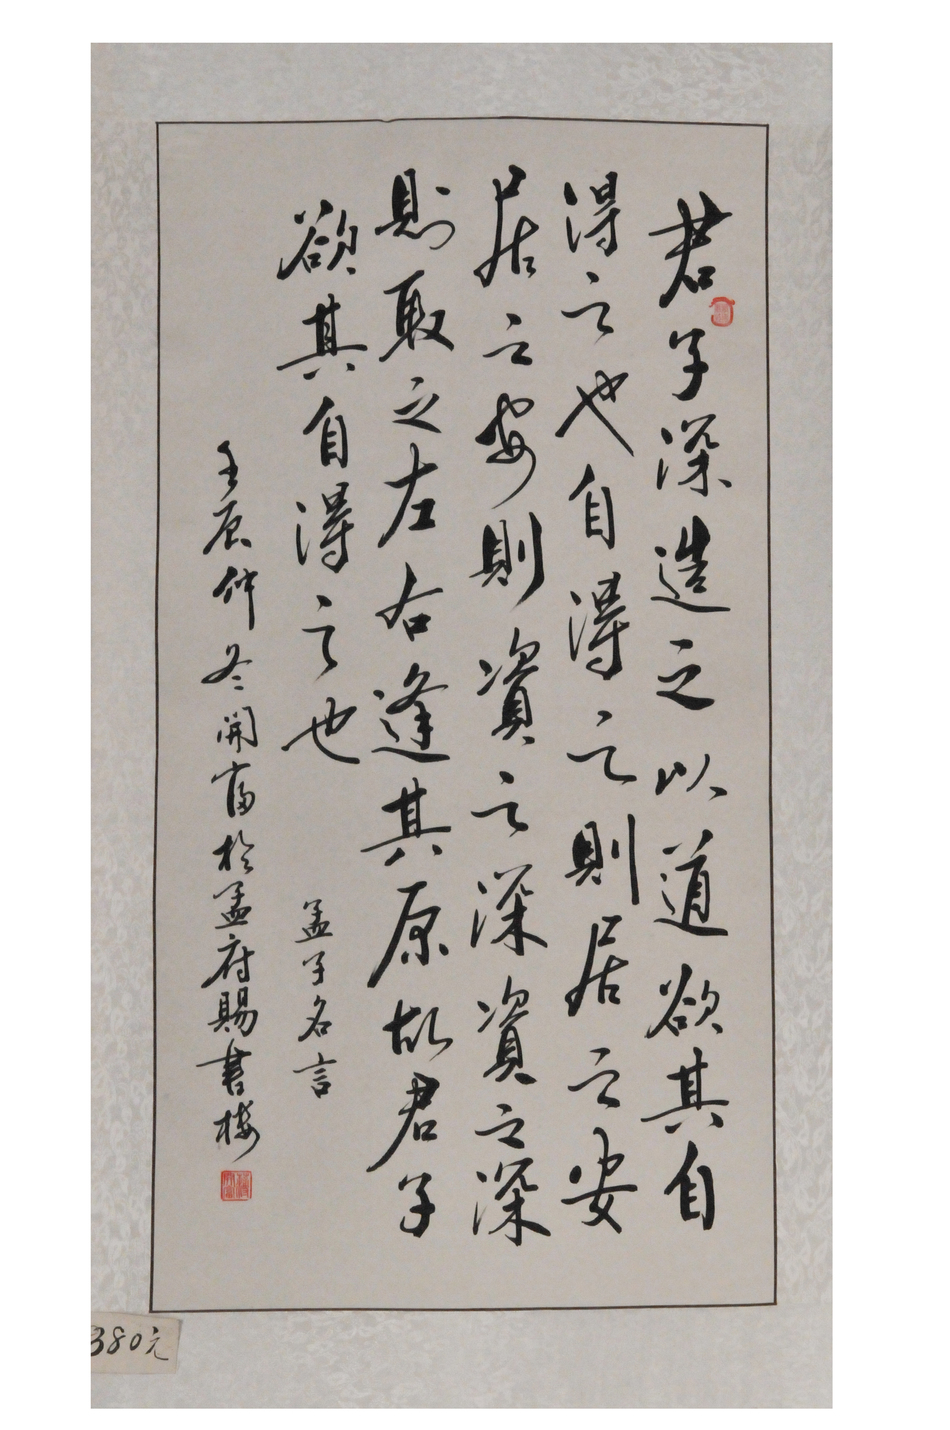 君子深造之以道欲其自
得之也自得之則居之安
居之安則資之深資之深
則取之左右逢其原故君子
欲其自得之也
孟子名言
壬辰仲冬開富於孟府賜書樓
380元